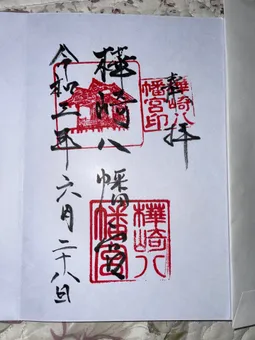 奉拝
樺崎八幡宮
令和二年六月二十八日
樺崎八幡宮印
樺崎八幡宮